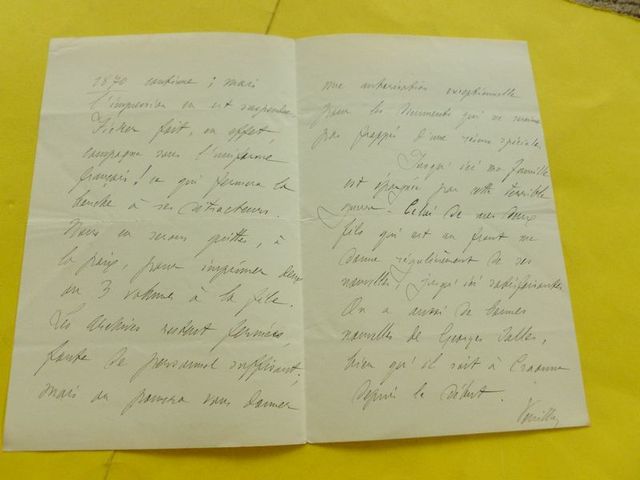 1870 continue ; mais
l'impression en est suspendue.
Ficker fait, en effet,
campagne sous l'uniforme
français ! ce qui fermera la
bouche à ses détracteurs.
Nous en serons quittes, à
la paix, pour imprimer deux
ou 3 volumes à la file.
Les Archives restent fermées,
faute de personnel suffisant ;
mais on pourra vous donner
une autorisation exceptionnelle
pour les documents qui ne seraient
pas frappés d'une réserve spéciale.
Jusqu'ici ma famille
est épargnée par cette terrible
guerre. Celui de mes deux
fils qui est au front me
donne régulièrement de ses
nouvelles, jusqu'ici satisfaisantes.
On a aussi de bonnes
nouvelles de Georges
bien qu'il soit à Craonne
depuis le début.